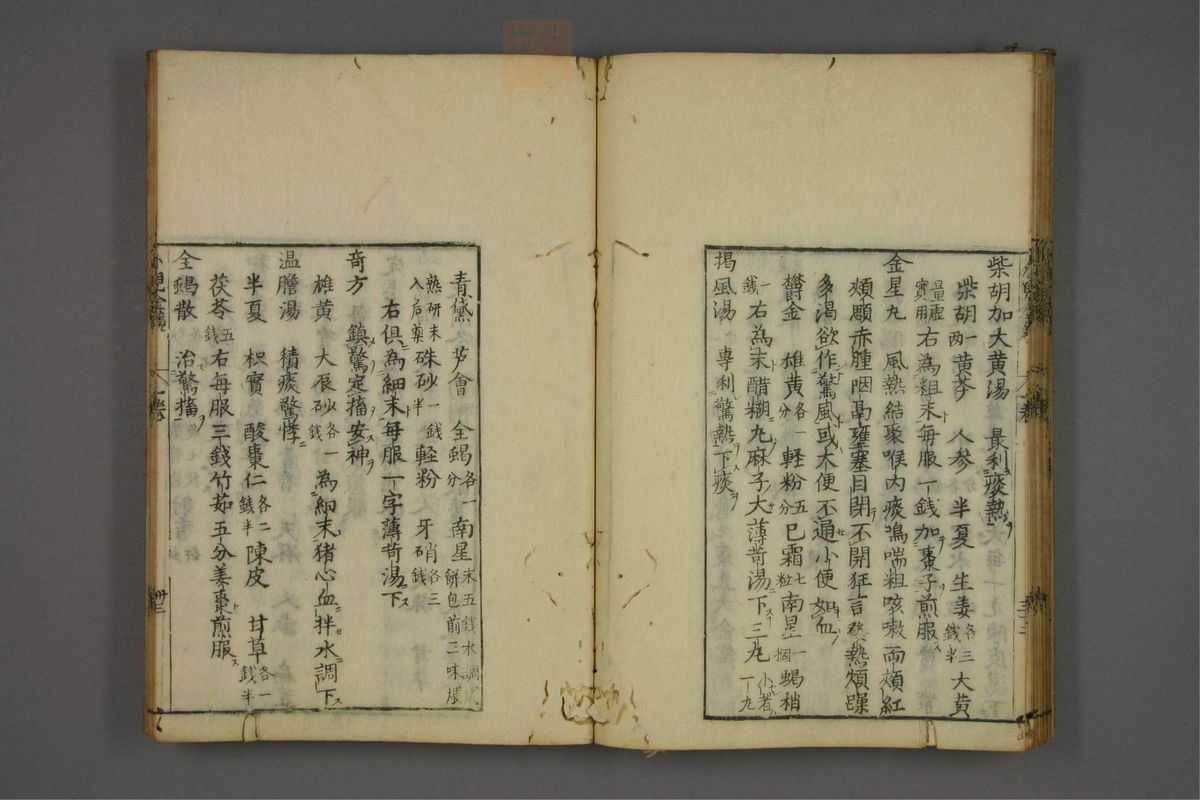 柴胡加大黄湯　最利痰熱
柴胡一両黄芩　人参　半夏　生姜各三銭半大黄
量虚実用右為粗末毎服一銭加棗子煎服
金星丸　風熱結聚喉内痰鳴喘粗咳嗽両頬紅
頬顋赤腫咽膈壅塞目閉不開狂言発熱煩躁
多渇欲作驚風或大便不通小便如血
欝金　雄黄各一分軽粉五分巴霜七粒南星一個蝎稍
一銭右為末醋糊丸麻子大薄苛湯下三丸小者一丸
掲風湯　専利驚熱下痰
青黛　芦會　全蝎各一分南星末五銭水調成餅包前二味煨
熟研末入后薬硃砂一銭半軽粉　牙硝各三銭
右倶為細末毎服一字薄苛湯下
奇方　鎮驚定搐安神
雄黄　大辰砂各一銭　為細末猪心血拌水調下
温膽湯　積痰驚悸
半夏　枳實　酸棗仁各二銭半陳皮　甘草各一銭半
茯苓五銭右毎服三銭竹茹五分姜棗煎服
全蝎散　治驚搐